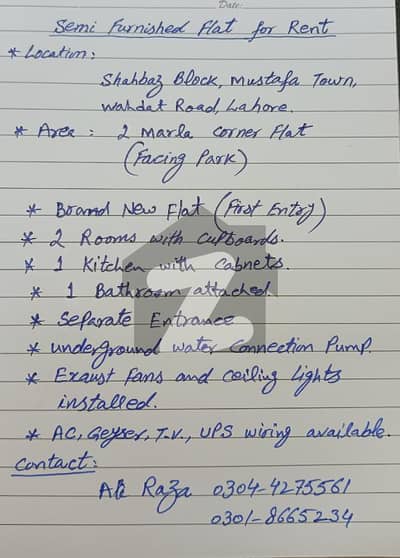 Date:
Semi Furnished Flat for Rent
* Location:
Shahbaz Block, Mustafa Town,
Wahdat Road, Lahore.
* Area: 2 Marla Corner Flat
(Facing Park)
* Brand New Flat (First Entry)
* 2 Rooms with Cupboards.
* 1 Kitchen with Cabnets.
* 1 Bathroom attached.
* Separate Entrance
* underground water Connection Pump.
* Exaust fans and ceiling lights
installed.
* AC, Geyser, T.V., UPS wiring available.
Contact:
Ali Raza 0304-4275561
0301-8665234